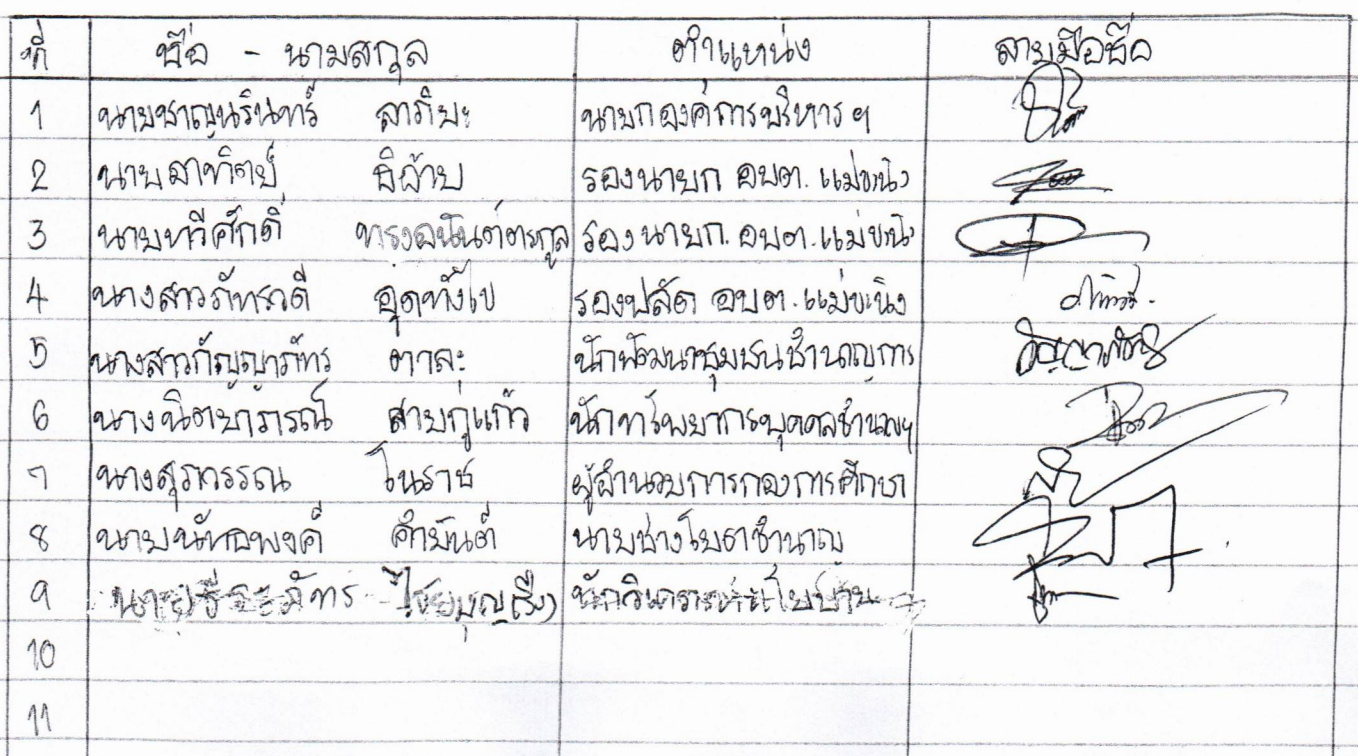 ที่ ชื่อ - นามสกุล ตำแหน่ง ลายมือชื่อ
1 นายชาญนรินทร์ ลาภิยะ นายกองค์การบริหารฯ
2 นายสาทิตย์ ธิอ้าย รองนายก อบต.แม่ขนิง
3 นายทวีศักดิ์ ทรงอนันต์ตระกูล รองนายก.อบต.แม่ขนิง
4 นางสาวภัทรวดี อุดทังไข รองปลัด อบต.แม่ขนิง
5 นางสาวกัญญาภัทร ตาละ นักพัฒนาชุมชนชำนาญการ
6 นางนิตยาภรณ์ สายกู่แก้ว นักทรัพยากรบุคคลชำนาญฯ
7 นางสุภาวรรณ โนราช ผู้อำนวยการกองการศึกษา
8 นายนัทธพงค์ คำยันต์ นายช่างโยธาชำนาญ
9 นายธีระภัทร ไชยบุญเรือง นักวิเคราะห์นโยบาย
10
11